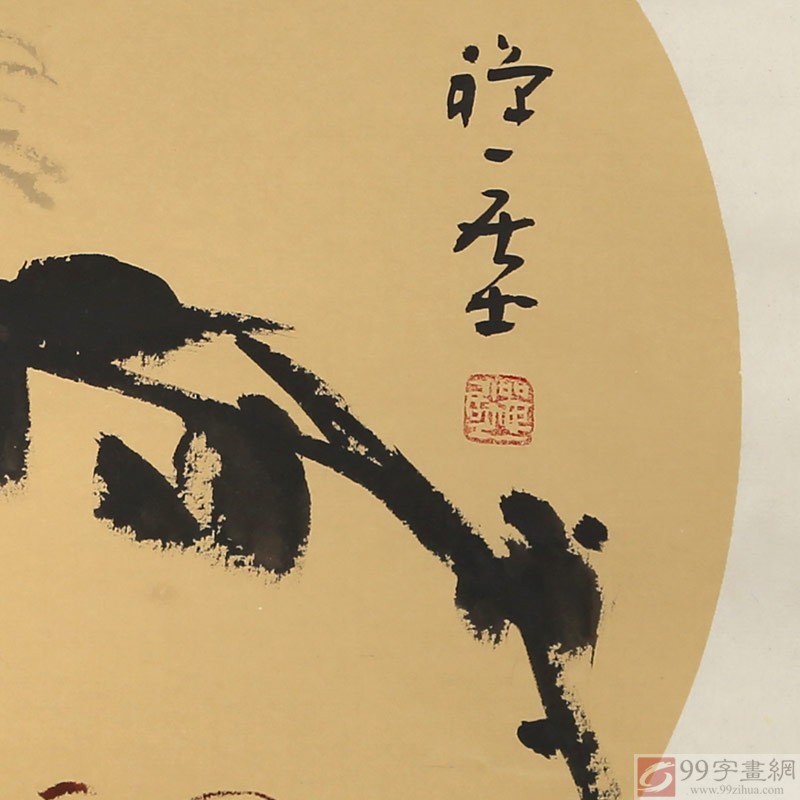 禅一居士
99字畫網
www.99zihua.com